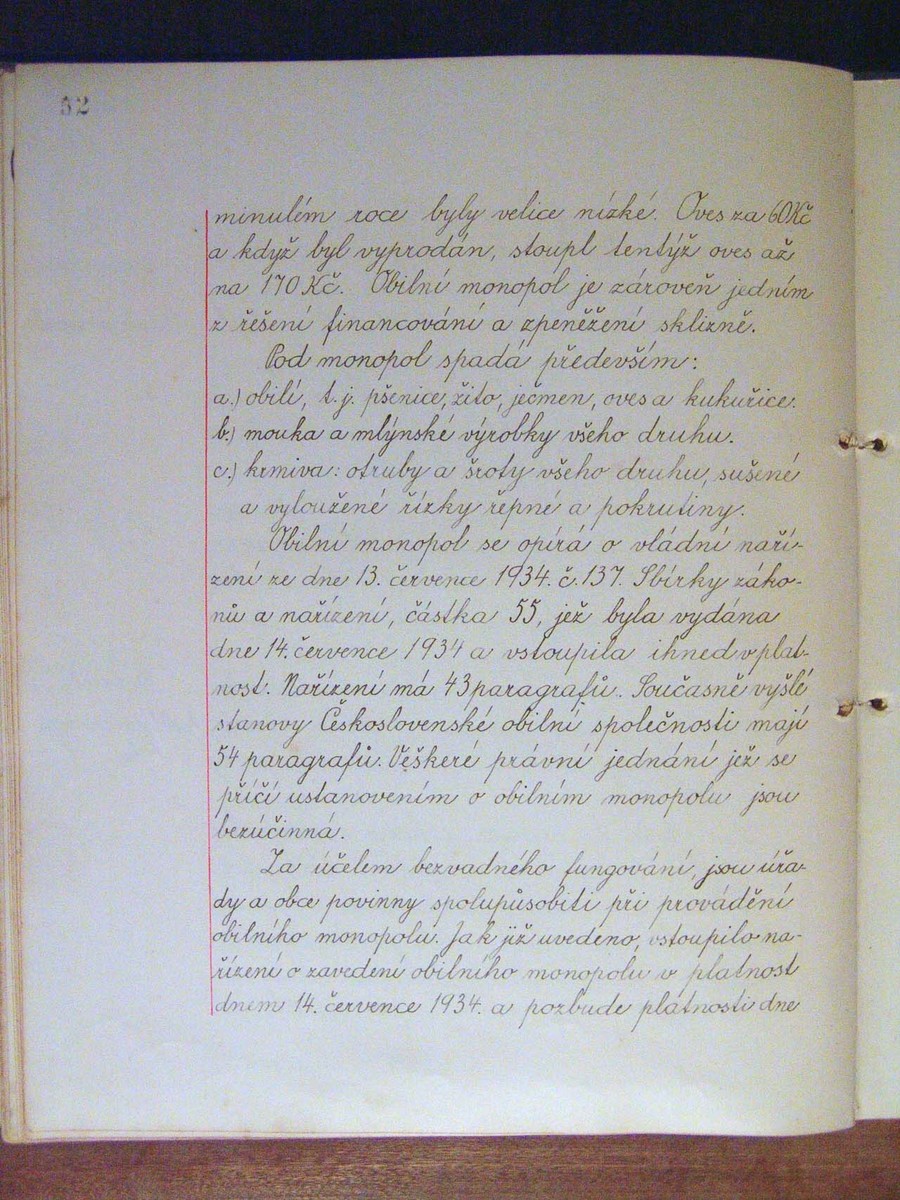 52
minulém roce byly velice nízké. Oves za 60 Kč
a když byl vyprodán, stoupl tentýž oves až
na 170 Kč. Obilní monopol je zároveň jedním
z řešení financování a zpeněžení sklizně.
Pod monopol spadá především:
a.) obilí, t.j. pšenice, žito, ječmen, oves a kukuřice.
b.) mouka a mlýnské výrobky všeho druhu.
c.) krmiva: otruby a šroty všeho druhu, sušené
a vyloužené řízky řepné a pokrutiny.
Obilní monopol se opírá o vládní naří-
zení ze dne 13. července 1934. č. 137. Sbírky záko-
nů a nařízení, částka 55, jež byla vydána
dne 14. července 1934 a vstoupila ihned v plat-
nost. Nařízení má 43 paragrafů. Současně vyšlé
stanovy Československé obilní společnosti mají
54 paragrafů. Veškeré právní jednání jež se
příčí ustanovením o obilním monopolu jsou
bezúčinná.
Za účelem bezvadného fungování, jsou úřa-
dy a obce povinny spolupůsobiti při provádění
obilního monopolu. Jak již uvedeno, vstoupilo na-
řízení o zavedení obilního monopolu v platnost
dnem 14. července 1934. a pozbude platnosti dne